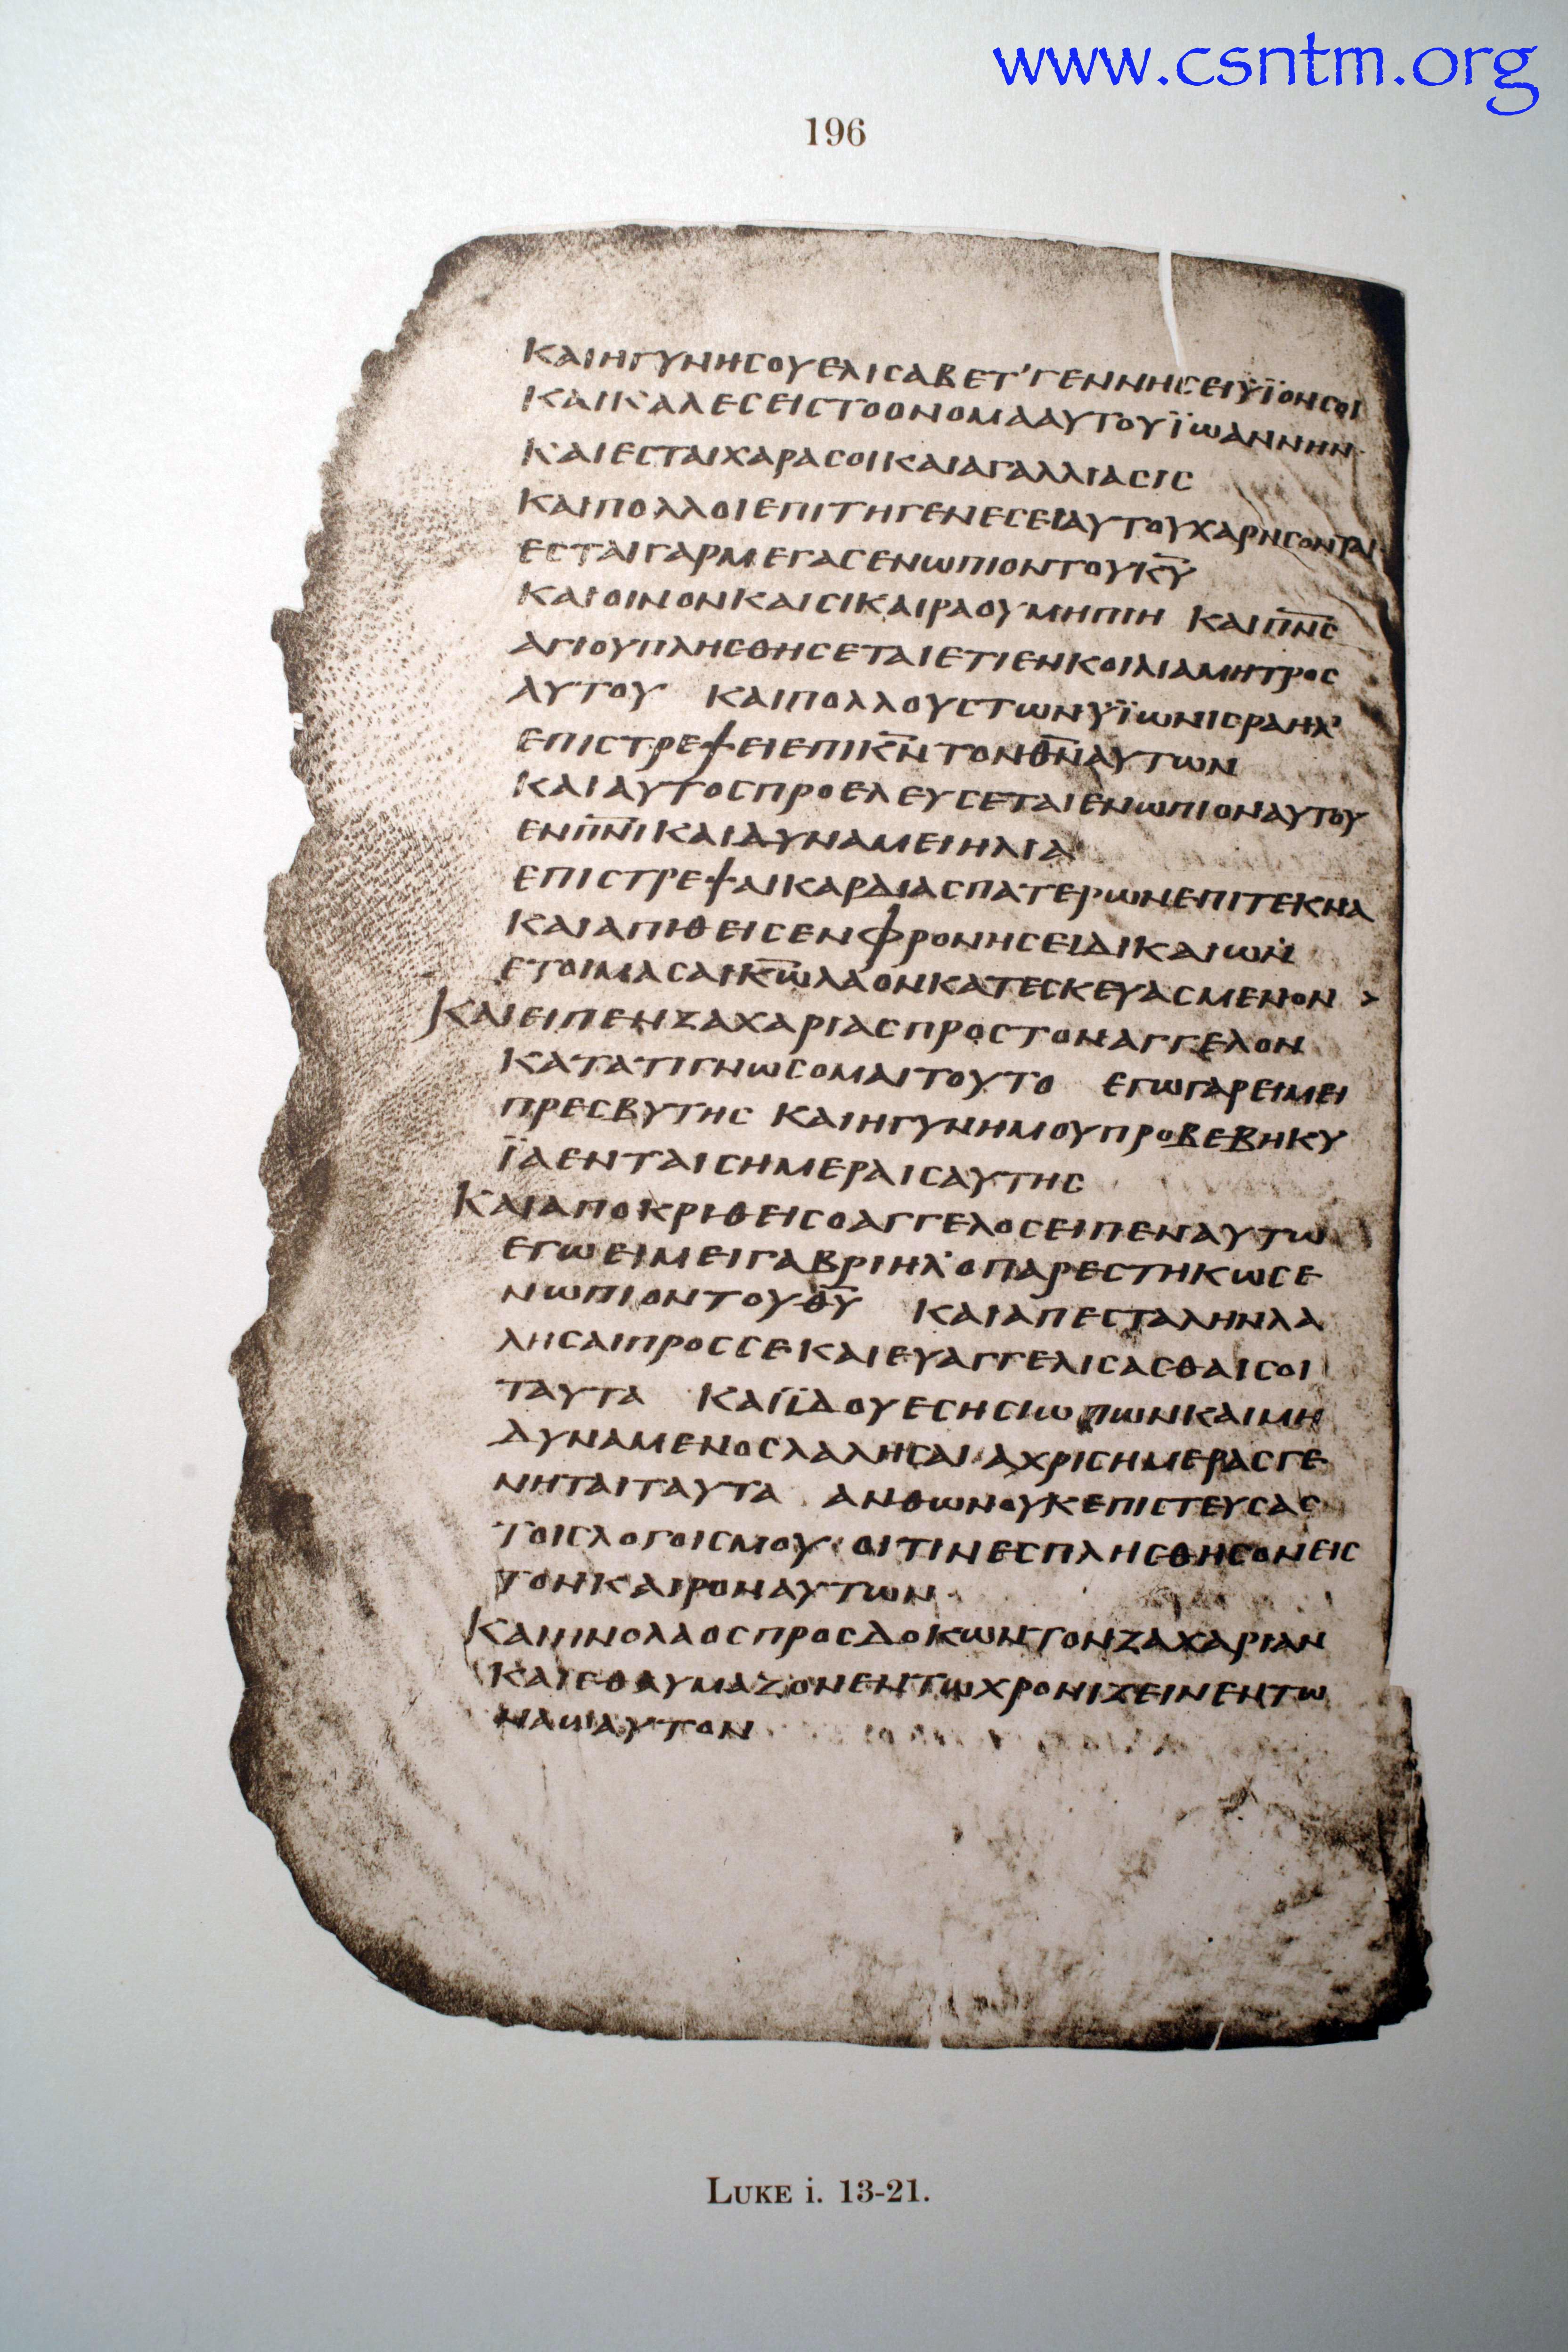 www.csntm.org
196
ΚΑΙΗΓΥΝΗСΟΥΕΛΙСΑΒΕΤ'ΓΕΝΝΗСΕΙΥΪΟΝСΟΙ
ΚΑΙΚΑΛΕСΕΙСΤΟΟΝΟΜΑΑΥΤΟΥΪωΑΝΝΗΝ·
ΚΑΙΕСΤΑΙΧΑΡΑСΟΙΚΑΙΑΓΑΛΛΙΑСΙС
ΚΑΙΠΟΛΛΟΙΕΠΙΤΗΓΕΝΕСΕΙΑΥΤΟΥΧΑΡΗСΟΝΤΑΙ
ΕСΤΑΙΓΑΡΜΕΓΑСΕΝωΠΙΟΝΤΟΥΚ̅Υ̅
ΚΑΙΟΙΝΟΝΚΑΙСΙΚΑΙΡΑΟΥΜΗΠΙΗ ΚΑΙΠ̅Ν̅С̅
ΑΓΙΟΥΠΛΗСΘΗСΕΤΑΙΕΤΙΕΝΚΟΙΛΙΑΜΗΤΡΟС
ΑΥΤΟΥ ΚΑΙΠΟΛΛΟΥСΤωΝΥΪωΝΙСΡΑΗΛ'
ΕΠΙСΤΡΕΨΕΙΕΠΙΚ̅Ν̅ΤΟΝΘ̅Ν̅ΑΥΤωΝ
ΚΑΙΑΥΤΟСΠΡΟΕΛΕΥСΕΤΑΙΕΝωΠΙΟΝΑΥΤΟΥ
ΕΝΠ̅Ν̅Ι̅ΚΑΙΔΥΝΑΜΕΙΗΛΙΑ
ΕΠΙСΤΡΕΨΑΙΚΑΡΔΙΑСΠΑΤΕΡωΝΕΠΙΤΕΚΝΑ
ΚΑΙΑΠΙΘΕΙСΕΝΦΡΟΝΗСΕΙΔΙΚΑΙωΝ
ΕΤΟΙΜΑСΑΙΚ̅ω̅ΛΑΟΝΚΑΤΕСΚΕΥΑСΜΕΝΟΝ >
ΚΑΙΕΙΠΕΝΖΑΧΑΡΙΑСΠΡΟСΤΟΝΑΓΓΕΛΟΝ
ΚΑΤΑΤΙΓΝωСΟΜΑΙΤΟΥΤΟ ΕΓωΓΑΡΕΙΜΕΙ
ΠΡΕСΒΥΤΗС ΚΑΙΗΓΥΝΗΜΟΥΠΡΟΒΕΒΗΚΥ
ΪΑΕΝΤΑΙСΗΜΕΡΑΙСΑΥΤΗС
ΚΑΙΑΠΟΚΡΙΘΕΙСΟΑΓΓΕΛΟСΕΙΠΕΝΑΥΤω
ΕΓωΕΙΜΕΙΓΑΒΡΙΗΛ'ΟΠΑΡΕСΤΗΚωСΕ
ΝωΠΙΟΝΤΟΥΘ̅Υ̅ ΚΑΙΑΠΕСΤΑΛΗΝΛΑ
ΛΗСΑΙΠΡΟССΕΚΑΙΕΥΑΓΓΕΛΙСΑСΘΑΙСΟΙ
ΤΑΥΤΑ ΚΑΙΪΔΟΥΕСΗСΙωΠωΝΚΑΙΜΗ
ΔΥΝΑΜΕΝΟСΛΑΛΗСΑΙΑΧΡΙСΗΜΕΡΑСΓΕ
ΝΗΤΑΙΤΑΥΤΑ ΑΝΘωΝΟΥΚΕΠΙСΤΕΥСΑС
ΤΟΙСΛΟΓΟΙСΜΟΥ ΟΙΤΙΝΕСΠΛΗСΘΗСΟΝΕΙС
ΤΟΝΚΑΙΡΟΝΑΥΤωΝ·
ΚΑΙΗΝΟΛΑΟСΠΡΟСΔΟΚωΝΤΟΝΖΑΧΑΡΙΑΝ
ΚΑΙΕΘΑΥΜΑΖΟΝΕΝΤωΧΡΟΝΙΖΕΙΝΕΝΤω
ΝΑωΑΥΤΟΝ
LUKE i. 13-21.